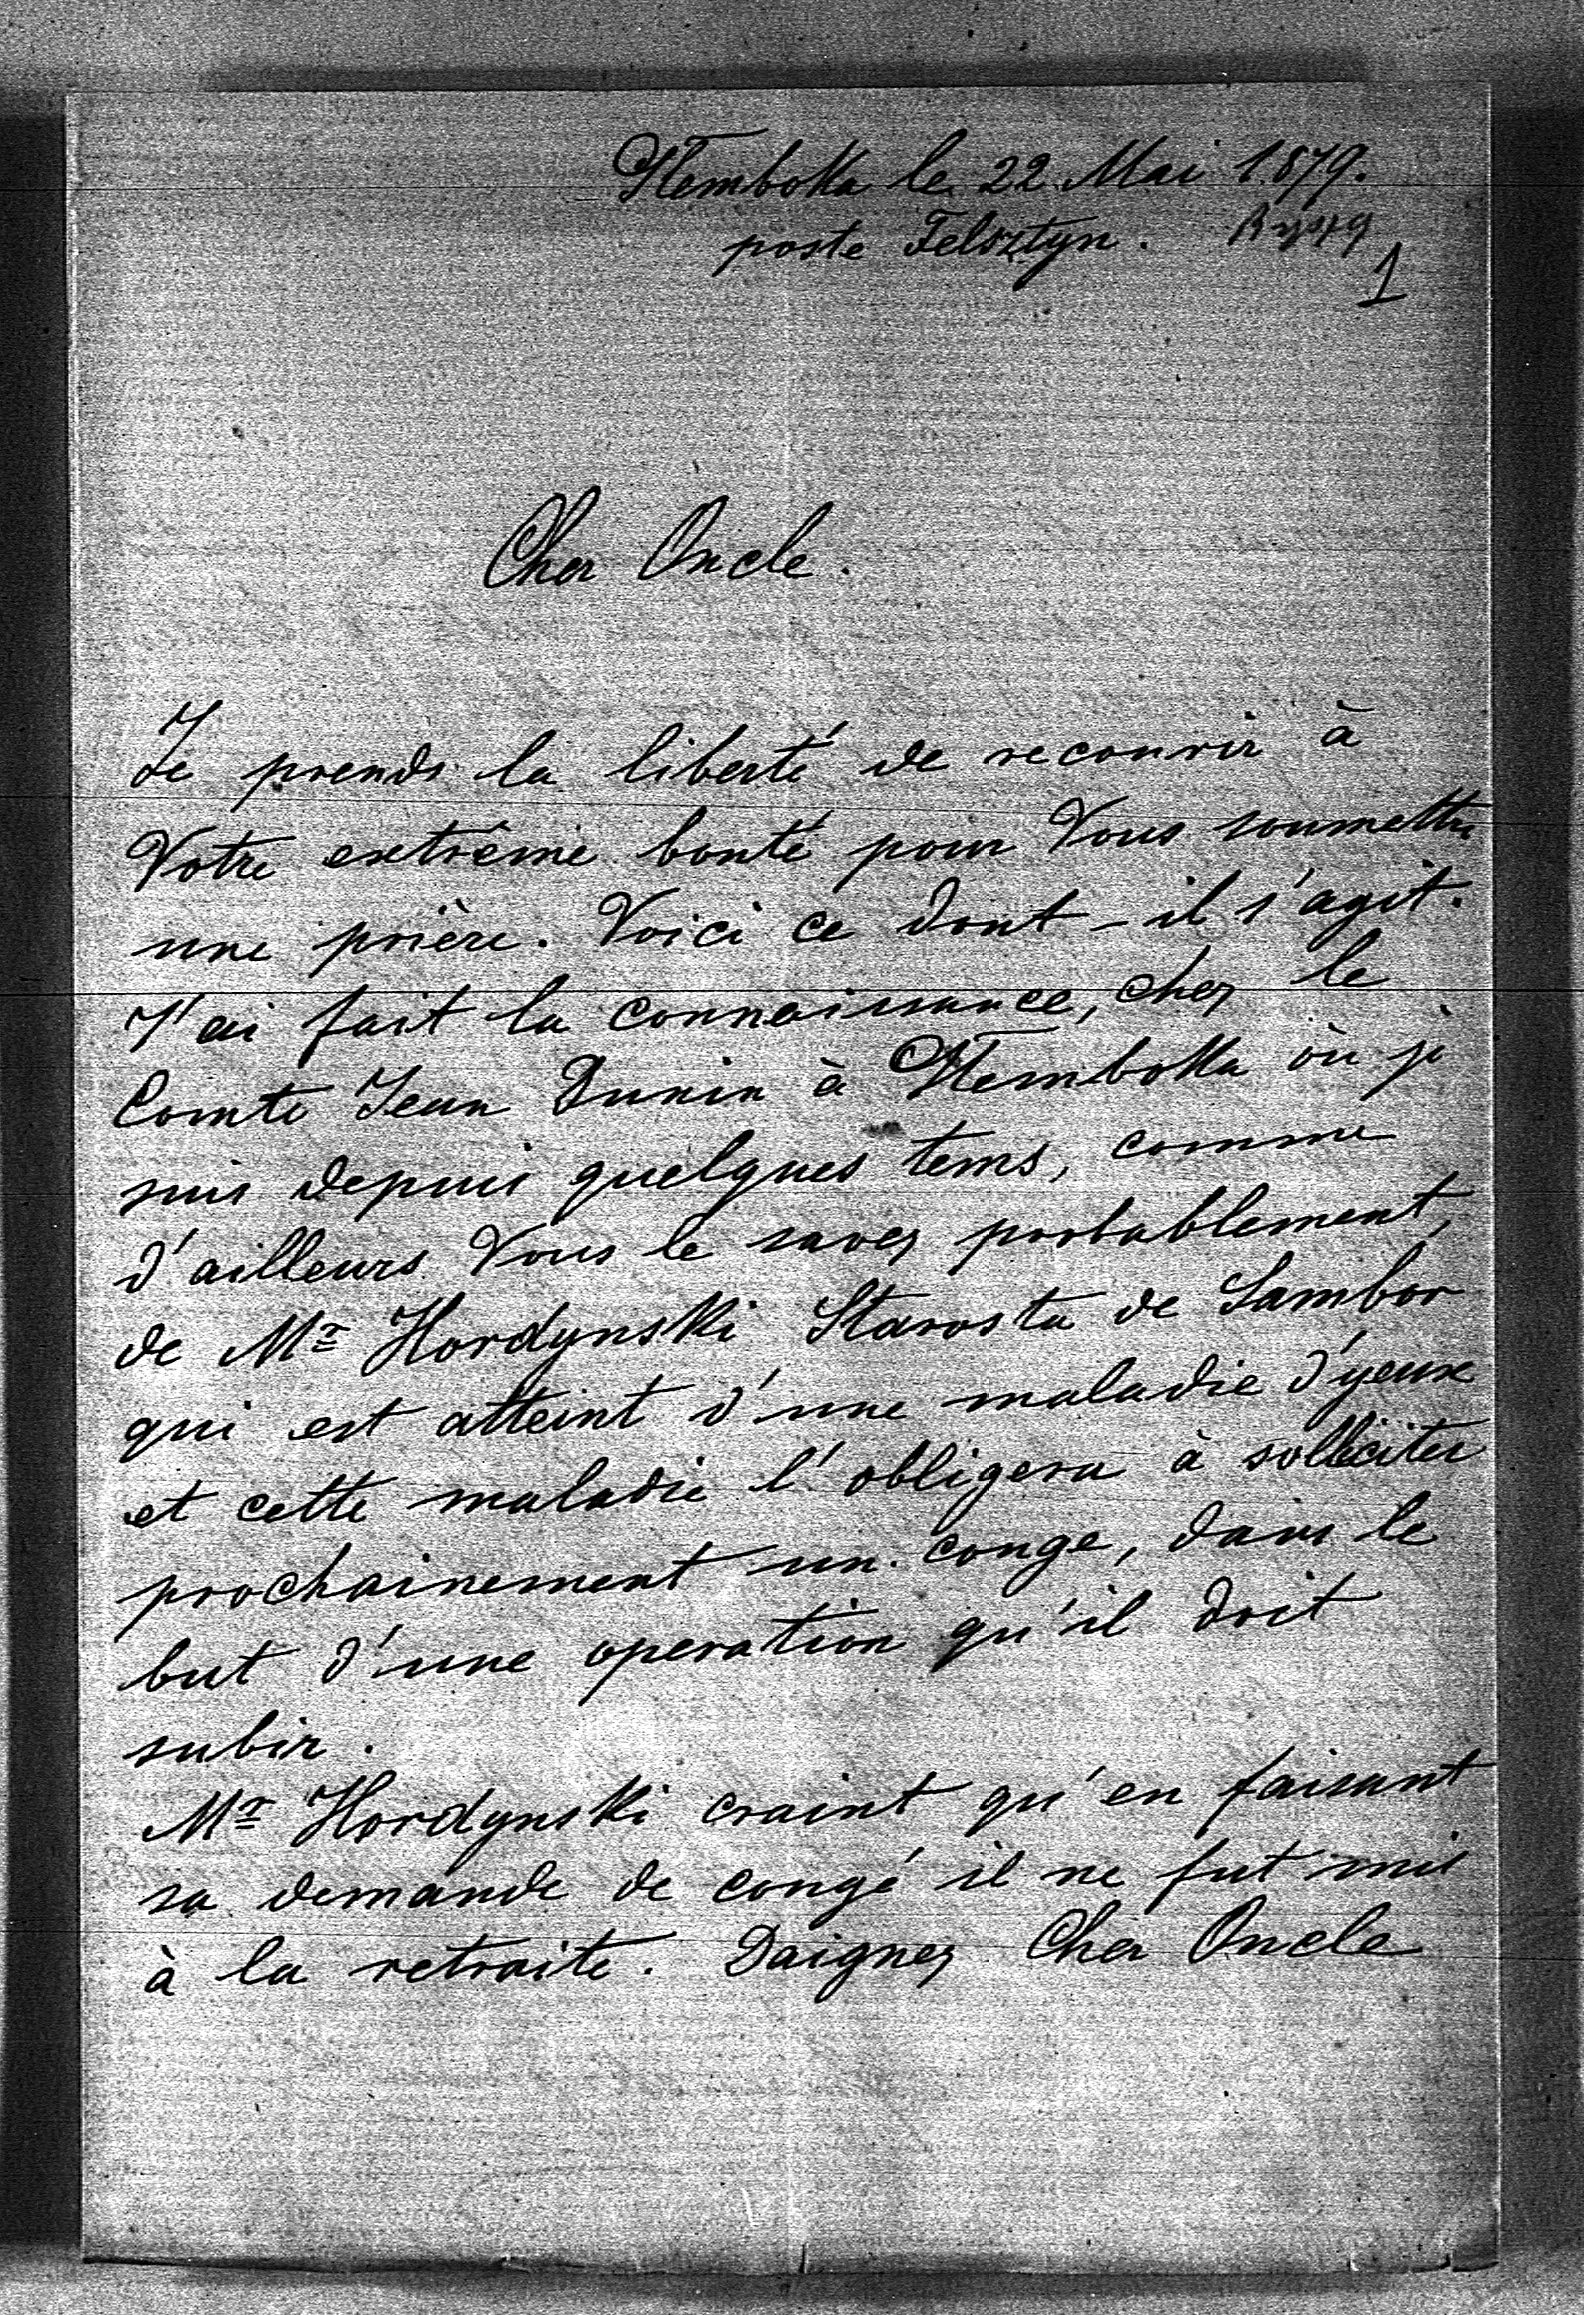 Głemboka le 22 Mai 1879.
poste Felsztyn.
1
Cher Oncle.
Je prends la liberté de recourir à
Votre extrême bonté pour Vous soumettre
une prière. Voici ce dont-il s'agit.
J'ai fait la connaissance, chez le
Comte Jean Dunin à Głemboka où je
suis depuis quelques tems, comme
d'ailleurs Vous le savez probablement,
de Mr Hordynski Starosta de Sambor
qui est atteint d'une maladie d'yeux
et cette maladie l'obligera à solliciter
prochainement un conge, dans le
but d'une operation qu'il doit
subir.
Mr Hordynski craint qu'en faisant
sa demande de congé il ne fut mis
à la retraite. Daignez Cher Oncle